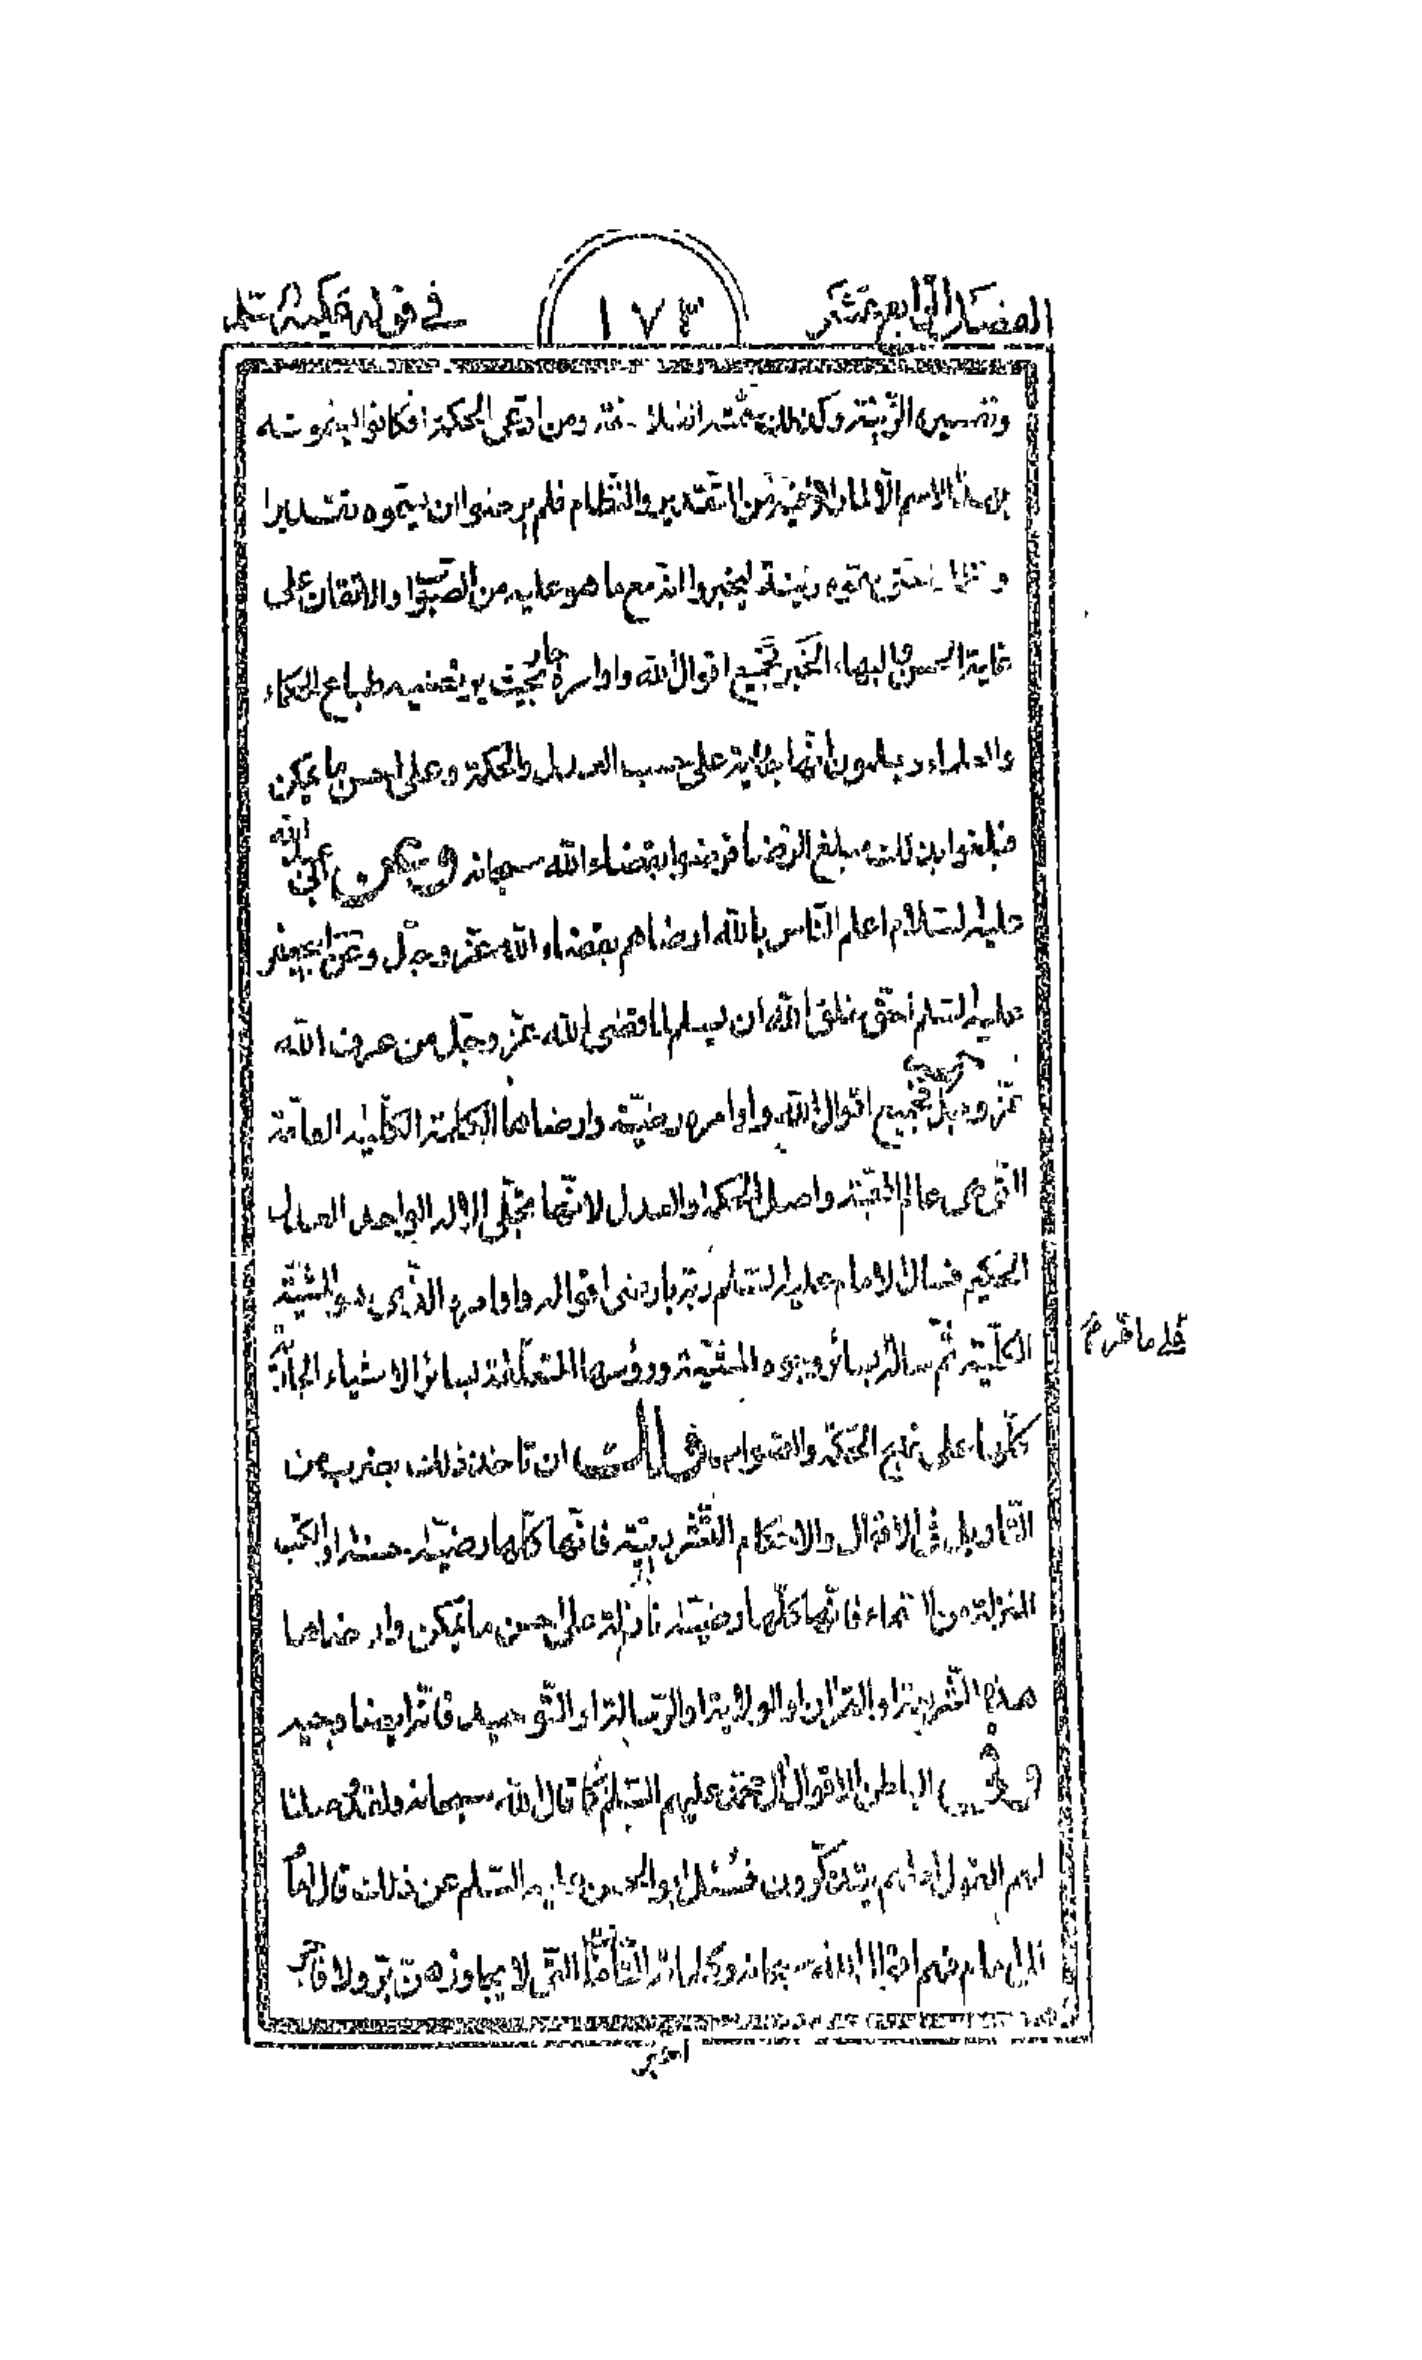 الفصل الرابع عشر
١٧٣
في قوله عليه السلم
ومن ادعى الحكمة فكانوا ينعوته
بهذا الاسم والنظام فلم يرضوا ان يسموه تقديرا
ليخبروا انه مع ما هو عليه من الصواب والاتقان على
غاية الحسن والبهاء الخبر فجميع اقوال الله واوامره جار بحيث يرتضيه طباع الحكماء
والعلماء ويعلمون انها جارية على حسب العدل والحكمة وعلى احسن ما يمكن
فبلغوا بذلك مبلغ الرضا فرضوا بقضاء الله سبحانه وعن ابي عبد الله
عليه السلام اعلم الناس بالله ارضاهم بقضاء الله عز وجل وعن ابي جعفر
عليه السلم احق خلق الله ان يسلم لما قضى الله عز وجل من عرف الله
عز وجل فجميع اقوال الله واوامره رضية وارضاها الكلمة الكلية العامة
التي هي عالم المحبة واصل الحكمة والعدل لانها مجلى الاله الواحد العدل
الحكيم فسال الامام عليه السلم ربه بارضى اقواله واوامره الذي هو المشية
الكلية ثم ساله بسائر وجوه المشية ورؤسها المتعلقة بسائر الاشياء الجارية
على ما قدم
كلها على نهج الحكمة والصواب ولك ان تاخذ ذلك بضرب من
التاويل في الاقوال والاحكام التشريعية فانها كلها رضية حسنة او الكتب
المنزلة من السماء فانها كلها رضية نازلة على احسن ما يمكن وارضاها
هذه الشريعة او القران او الولاية او الرسالة او التوحيد فانه ايضا وجيه
وفي الباطن الاقوال آل محمد عليهم السلم كما قال الله سبحانه ولقد وصلنا
لهم القول لعلهم يتذكرون فسئل ابو الحسن عليه السلم عن ذلك قال امام
الى امام فهم اقوال الله سبحانه وكلماته التامات التي لا يجاوزهن بر ولا فاجر